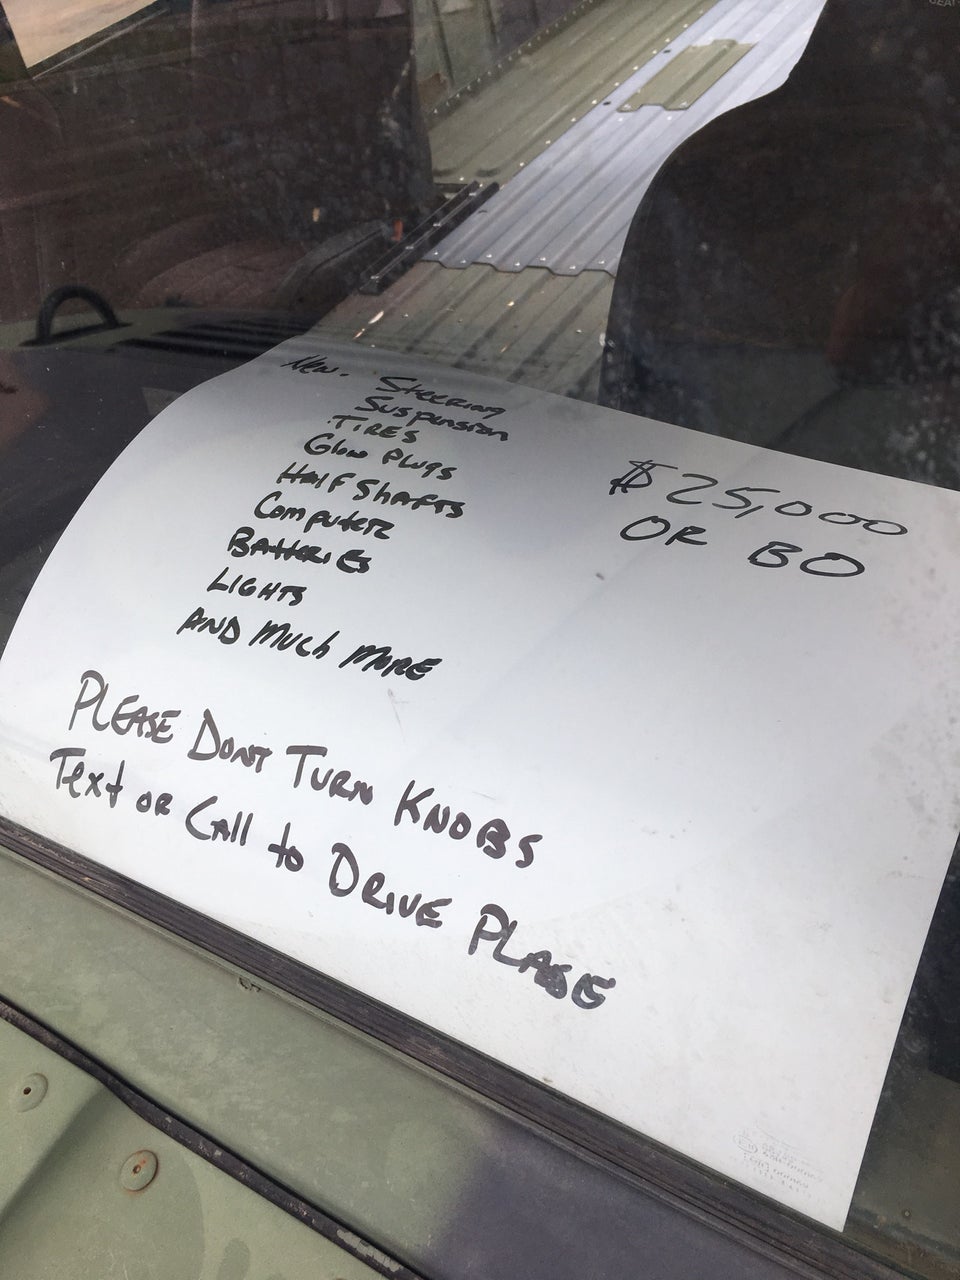 New. Steering
Suspension
TIRES
Glow Plugs
Half Shafts
Computer
Batteries
LIGHTS
AND Much MORE
$25,000
OR BO
PLEASE DONT TURN KNOBS
Text OR Call to DRIVE PLASE